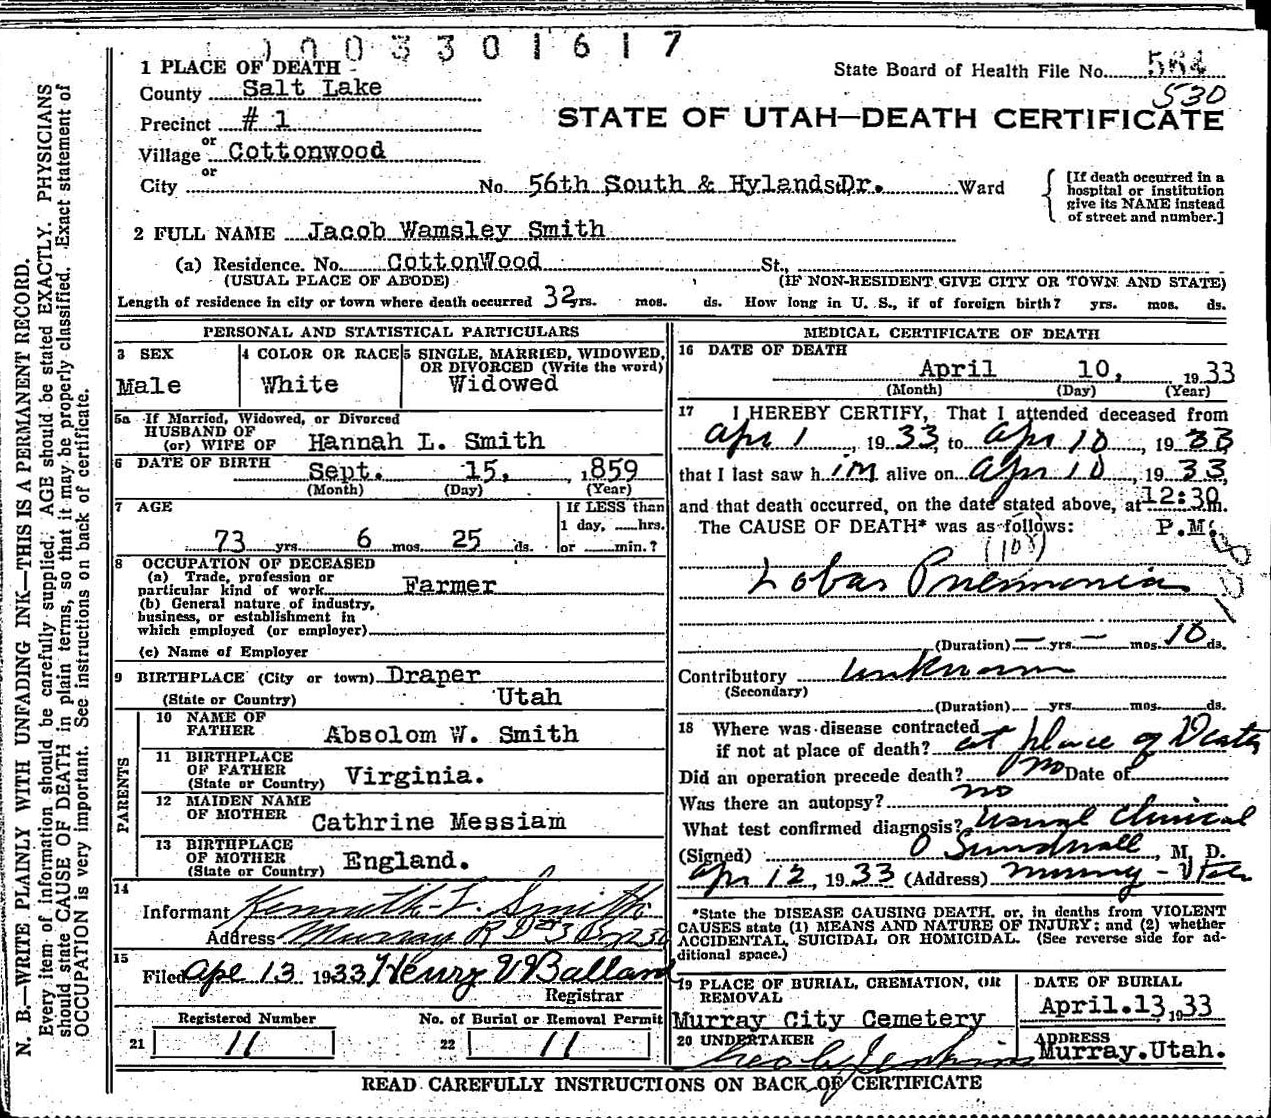 003301617
1 PLACE OF DEATH
State Board of Health File No. 564
530
County Salt Lake
Precinct # 1
STATE OF UTAH—DEATH CERTIFICATE
or
Village Cottonwood
or
City No. 56th South & Hylands Dr. Ward
[If death occurred in a hospital or institution give its NAME instead of street and number.]
2 FULL NAME Jacob Wamsley Smith
(a) Residence. No. CottonWood St.,
(USUAL PLACE OF ABODE) (IF NON-RESIDENT GIVE CITY OR TOWN AND STATE)
Length of residence in city or town where death occurred 32 yrs. mos. ds. How long in U. S., if of foreign birth? yrs. mos. ds.
PERSONAL AND STATISTICAL PARTICULARS
3 SEX
Male
4 COLOR OR RACE
White
5 SINGLE, MARRIED, WIDOWED, OR DIVORCED (Write the word)
Widowed
5a If Married, Widowed, or Divorced
HUSBAND OF
(or) WIFE OF Hannah L. Smith
6 DATE OF BIRTH Sept. 15, 1859
(Month) (Day) (Year)
7 AGE
73 yrs. 6 mos. 25 ds.
If LESS than
1 day, hrs.
or min.?
8 OCCUPATION OF DECEASED
(a) Trade, profession or
particular kind of work Farmer
(b) General nature of industry,
business, or establishment in
which employed (or employer)
(c) Name of Employer
9 BIRTHPLACE (City or town) Draper
(State or Country) Utah
PARENTS
10 NAME OF FATHER Absolom W. Smith
11 BIRTHPLACE OF FATHER (State or Country) Virginia.
12 MAIDEN NAME OF MOTHER Cathrine Messiam
13 BIRTHPLACE OF MOTHER (State or Country) England.
14
Informant Kenneth L. Smith
Address Murray R D #3 Box
15
Filed Apr 13 1933 Henry V Balland
Registrar
Registered Number
21 11
No. of Burial or Removal Permit
22 11
MEDICAL CERTIFICATE OF DEATH
16 DATE OF DEATH
April 10, 1933
(Month) (Day) (Year)
17 I HEREBY CERTIFY, That I attended deceased from
Apr 1, 1933, to Apr 10, 1933
that I last saw him alive on Apr 10, 1933,
and that death occurred, on the date stated above, at 12:30 m.
The CAUSE OF DEATH* was as follows: P.M.
(108)
108
Lobar Pneumonia
(Duration) — yrs. — mos. 10 ds.
Contributory unknown
(Secondary)
(Duration) yrs. mos. ds.
18 Where was disease contracted
if not at place of death? at place of Death
Did an operation precede death? no Date of
Was there an autopsy? no
What test confirmed diagnosis? Usual Clinical
(Signed) O Sundwall, M. D.
Apr 12, 1933 (Address) Murray - Utah
*State the DISEASE CAUSING DEATH, or, in deaths from VIOLENT
CAUSES state (1) MEANS AND NATURE OF INJURY; and (2) whether
ACCIDENTAL, SUICIDAL OR HOMICIDAL. (See reverse side for ad-
ditional space.)
19 PLACE OF BURIAL, CREMATION, OR REMOVAL
Murray City Cemetery
DATE OF BURIAL
April.13,1933
20 UNDERTAKER
Jenkins
ADDRESS
Murray.Utah.
READ CAREFULLY INSTRUCTIONS ON BACK OF CERTIFICATE
N. B.—WRITE PLAINLY WITH UNFADING INK—THIS IS A PERMANENT RECORD.
Every item of information should be carefully supplied. AGE should be stated EXACTLY. PHYSICIANS
should state CAUSE OF DEATH in plain terms, so that it may be properly classified. Exact statement of
OCCUPATION is very important. See instructions on back of certificate.